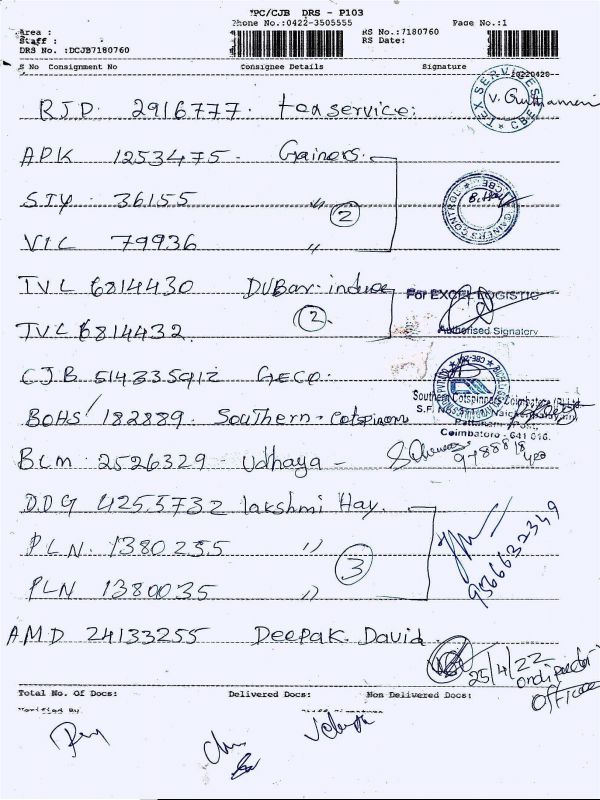 TPC/CJB DRS - P103
Phone No.:0422-3505555 Page No.:1
Area : RS No.:7180760
Staff : RS Date:
DRS No. :DCJB7180760
S No Consignment No Consignee Details Signature
RJD 2916777 tex service
TEX SERVICES * CBE *
APK 1253475 - Gainers
STY 36155 〃 2
GAINER CONTROL CBE
VIL 79936 〃
TVL 6814430 DUBar
For EXCEL LOGISTIC
TVL 6814432 2
Authorised Signatory
CJB 514335912 GECO
Southern Cotspinners Coimbatore (P) Ltd
BOHS 182889 Southern - Cotspinners
Coimbatore - 641 016.
BLM 2526329 - Udhaya -
DDG 4255732 Lakshmi Hay.
PLN 1380255 〃 3
9566632349
PLN 1380035 〃
AMD 24133255 Deepak David
25/4/22
Office
Total No. Of Docs: Delivered Docs: Non Delivered Docs:
Verified By